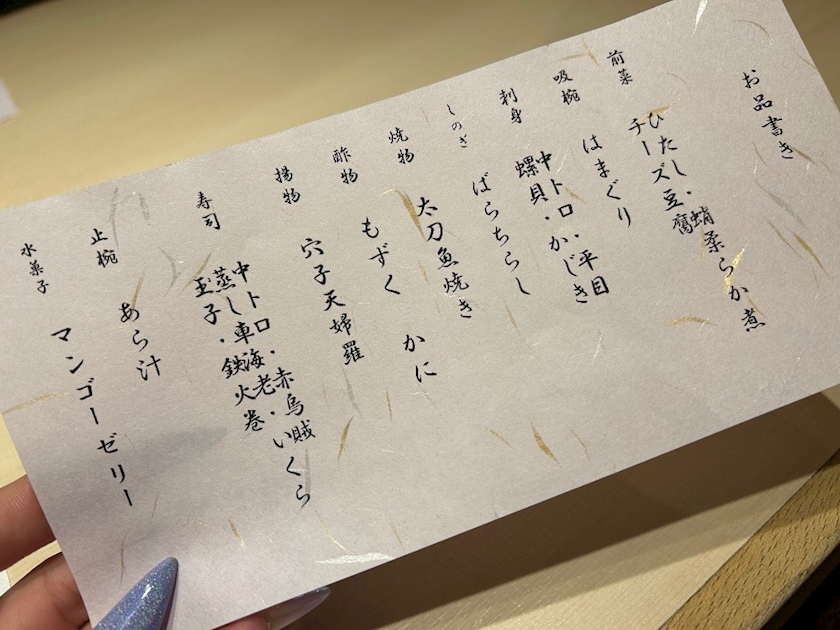 お品書き
前菜
ひたし・蛸柔らか煮
チーズ豆腐
吸椀
はまぐり
刺身
中トロ・平目
螺貝・かじき
しのぎ
ばらちらし
焼物
太刀魚焼き
酢物
もずく かに
揚物
穴子天婦羅
寿司
中トロ・赤烏賊
蒸し車海老・いくら
玉子・鉄火巻
止椀
あら汁
水菓子
マンゴーゼリー